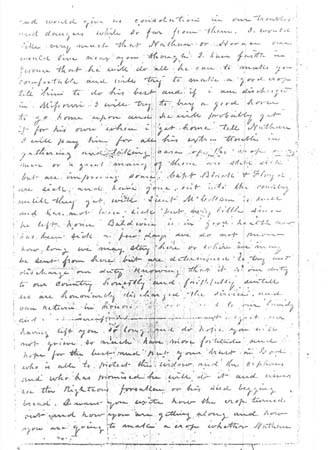 and would give us consolation in our troubles
and dangers while so far from them. I would
like very much that Nathan or Horace one
would live near you though I have faith in
that he will do all he can to make you
comfortable and will try to make a good crop
tell him to do his best and if I am discharged
in Missouri I will try to buy a good horse
to go home upon and he will probably get
it for his own when I get home tell Nathan
I will pay him for all his extra trouble in
gathering and taking care of the crop
a great many of them are still sick
but are improving some Capt Black &
are sick and have gone out into the country
until they get well Lieut McCollum is well
and has not been sick but very little since
he left home Baldwin is in good health now
has been sick a few days we do not know
how long we may stay here or where we may
be sent from here but are determined to try and
discharge our duty knowing that it is our duty
to our country honestly and faithfully until
we are honorably discharged the service and
can return in honor to our family
and
having left you so long and do hope you will
not grieve so much have more fortitude and
hope for the best and put your trust in God
who is able to protect the widow and the orphan
and who has promised he will do it and never
see the righteous forsaken or his seed begging
bread. I want you write how the crop turned
out and how you are getting along and how
you are going to make a crop whether Nathan